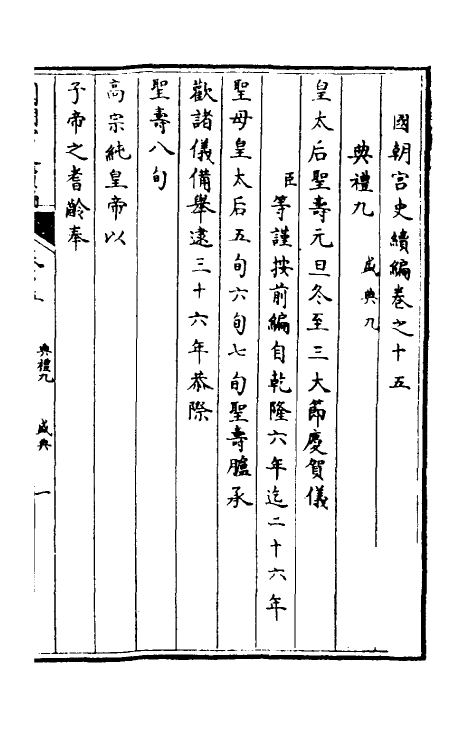 國朝宮史續編卷之十五
典禮九 盛典九
皇太后聖壽元旦冬至三大節慶賀儀
臣等謹按前編自乾隆六年迄二十六年
聖母皇太后五旬六旬七旬聖壽臚承
歡諸儀備舉逮三十六年恭際
聖壽八旬
高宗純皇帝以
予帝之耆齡奉
典禮九 盛典 一